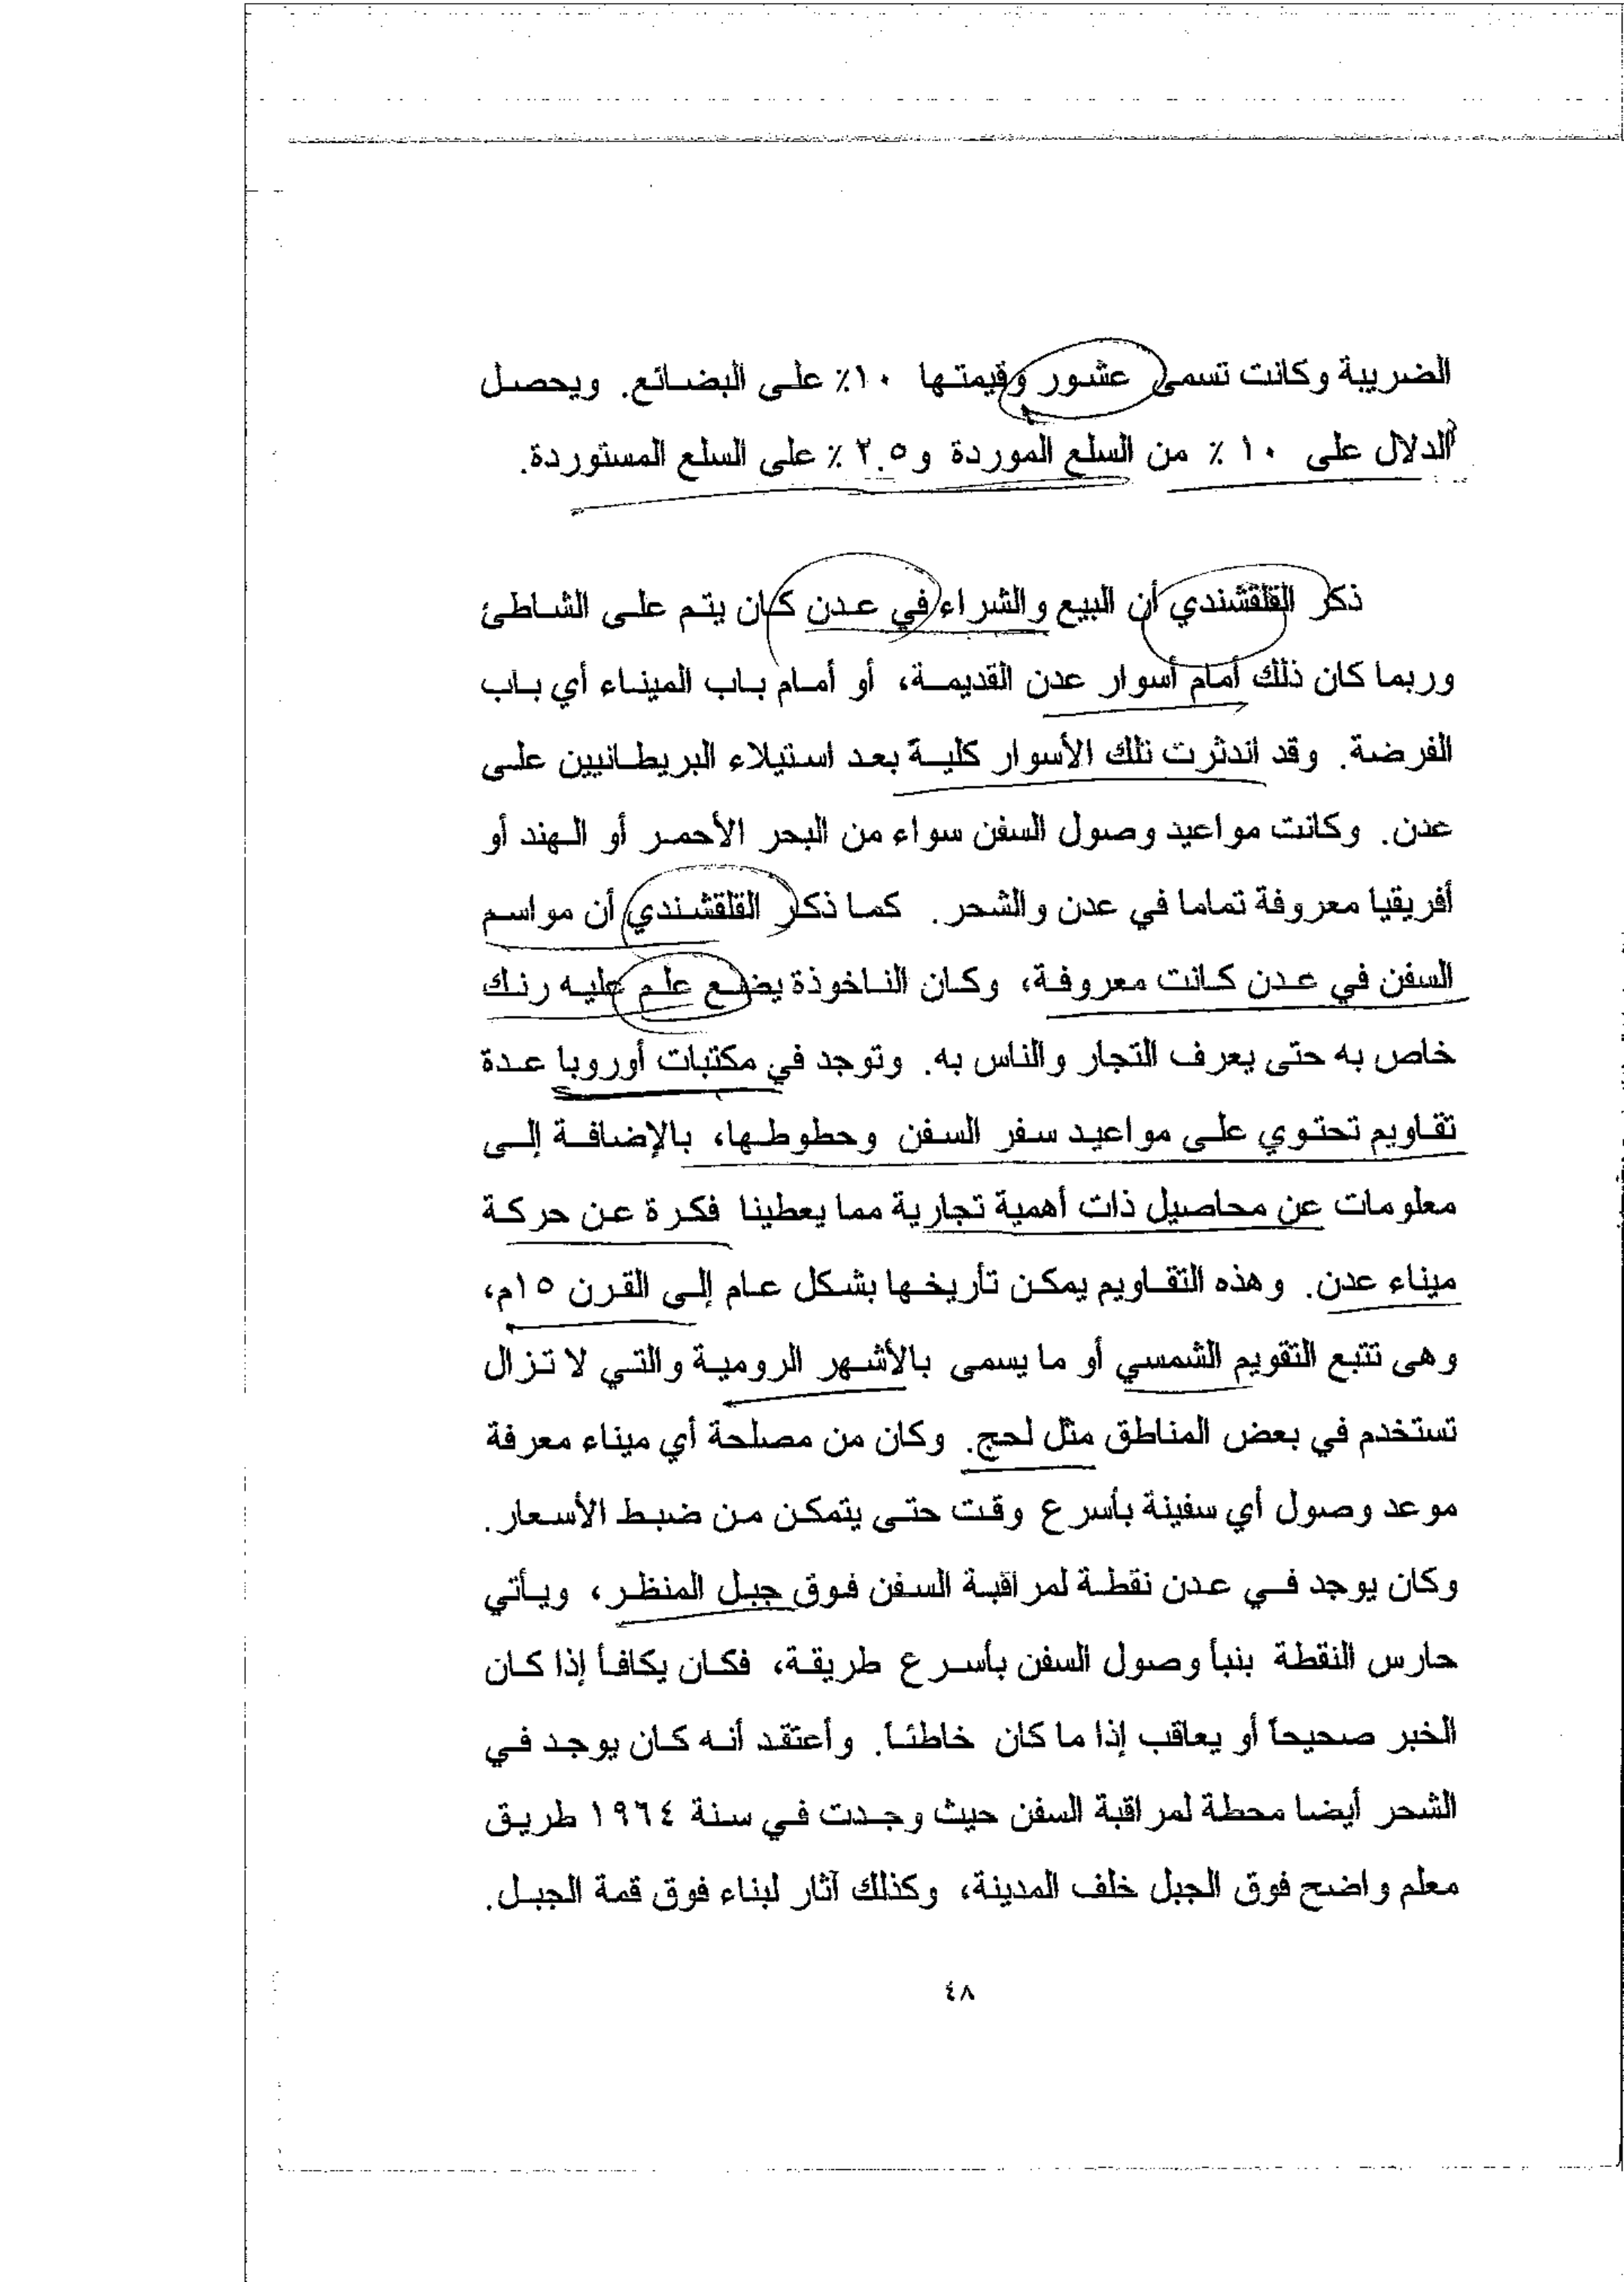 الضريبة وكانت تسمى عشور وقيمتها ١٠٪ على البضائع. ويحصل
الدلال على ١٠ ٪ من السلع الموردة و٢.٥ ٪ على السلع المستوردة.
ذكر القلقشندي أن البيع والشراء في عدن كان يتم على الشاطئ
وربما كان ذلك أمام أسوار عدن القديمة، أو أمام باب الميناء أي باب
الفرضة. وقد اندثرت تلك الأسوار كلية بعد استيلاء البريطانيين على
عدن. وكانت مواعيد وصول السفن سواء من البحر الأحمر أو الهند أو
أفريقيا معروفة تماما في عدن والشحر. كما ذكر القلقشندي أن مواسم
السفن في عدن كانت معروفة، وكان الناخوذة يضع علم عليه رنك
خاص به حتى يعرف التجار والناس به. وتوجد في مكتبات أوروبا عدة
تقاويم تحتوي على مواعيد سفر السفن وحطوطها، بالإضافة إلى
معلومات عن محاصيل ذات أهمية تجارية مما يعطينا فكرة عن حركة
ميناء عدن. وهذه التقاويم يمكن تأريخها بشكل عام إلى القرن ١٥م،
وهى تتبع التقويم الشمسي أو ما يسمى بالأشهر الرومية والتي لا تزال
تستخدم في بعض المناطق مثل لحج. وكان من مصلحة أي ميناء معرفة
موعد وصول أي سفينة بأسرع وقت حتى يتمكن من ضبط الأسعار.
وكان يوجد في عدن نقطة لمراقبة السفن فوق جبل المنظر، ويأتي
حارس النقطة بنبأ وصول السفن بأسرع طريقة، فكان يكافأ إذا كان
الخبر صحيحاً أو يعاقب إذا ما كان خاطئاً. وأعتقد أنه كان يوجد في
الشحر أيضا محطة لمراقبة السفن حيث وجدت في سنة ١٩٦٤ طريق
معلم واضح فوق الجبل خلف المدينة، وكذلك آثار لبناء فوق قمة الجبل.
٤٨